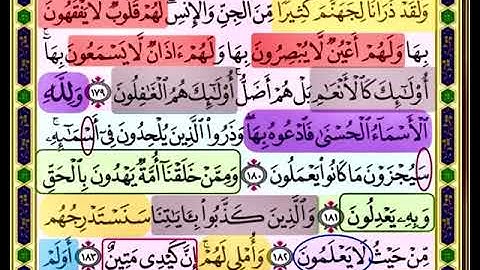 وَلَقَدْ ذَرَأْنَا لِجَهَنَّمَ كَثِيرًا مِّنَ الْجِنِّ وَالْإِنسِ ۖ لَهُمْ قُلُوبٌ لَّا يَفْقَهُونَ
بِهَا وَلَهُمْ أَعْيُنٌ لَّا يُبْصِرُونَ بِهَا وَلَهُمْ ءَاذَانٌ لَّا يَسْمَعُونَ بِهَا ۚ
أُو۟لَٰٓئِكَ كَالْأَنْعَٰمِ بَلْ هُمْ أَضَلُّ ۚ أُو۟لَٰٓئِكَ هُمُ الْغَٰفِلُونَ ١٧٩ وَلِلَّهِ
الْأَسْمَآءُ الْحُسْنَىٰ فَادْعُوهُ بِهَا ۖ وَذَرُوا۟ الَّذِينَ يُلْحِدُونَ فِىٓ أَسْمَٰٓئِهِۦ ۚ
سَيُجْزَوْنَ مَا كَانُوا۟ يَعْمَلُونَ ١٨٠ وَمِمَّنْ خَلَقْنَآ أُمَّةٌ يَهْدُونَ بِالْحَقِّ
وَبِهِۦ يَعْدِلُونَ ١٨١ وَالَّذِينَ كَذَّبُوا۟ بِـَٔايَٰتِنَا سَنَسْتَدْرِجُهُم
مِّنْ حَيْثُ لَا يَعْلَمُونَ ١٨٢ وَأُمْلِى لَهُمْ ۚ إِنَّ كَيْدِى مَتِينٌ ١٨٣ أَوَلَمْ